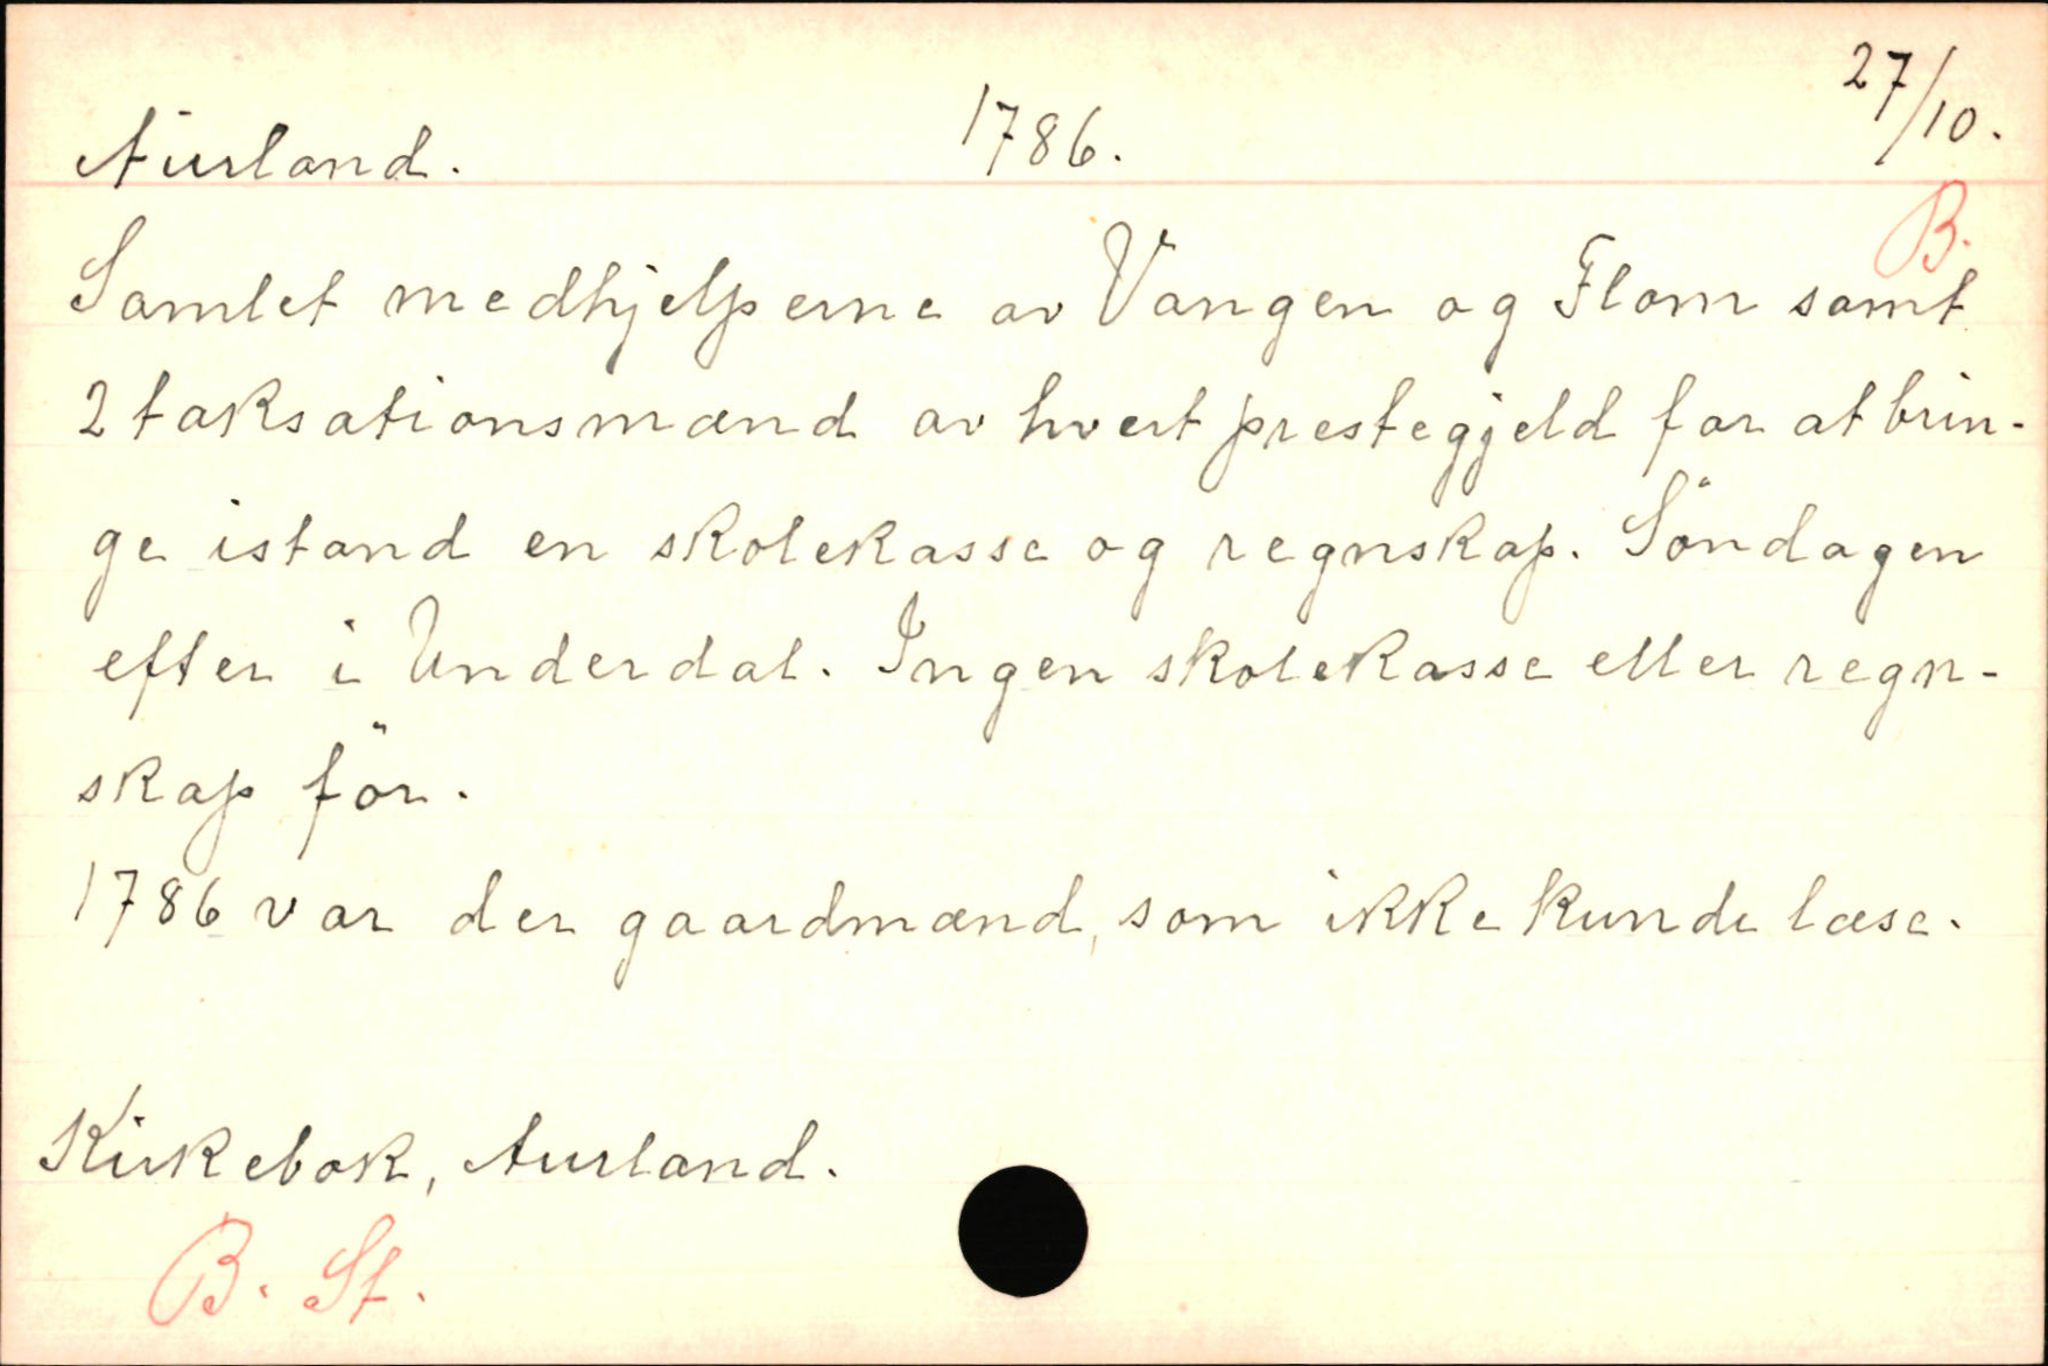 Aurland. 1786. 27/10.
B.
Samlet medhjelperne av Vangen og Flom samt
2 taksationsmænd av hvert prestegjeld for at brin-
ge istand en skolekasse og regnskap. Söndagen
efter i Underdal. Ingen skolekasse eller regn-
skap för.
1786 var der gaardmænd, som ikke kunde læse.
Kirkebok, Aurland.
B. St.